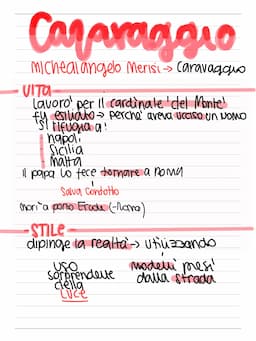 Caravaggio
Michealangelo Merisi → Caravaggio
VITA
lavoro' per il cardinale del Monte
fu esiliato → perche' aveva ucciso un uomo
si rifugia a:
napoli
Sicilia
malta
il papa lo fece tornare a roma
Salva condotto
mori' a porto Ercole (-Roma)
STILE
dipinge la realtà → utilizzando
uso
sorprendente
della
luce
modelli presi
dalla strada